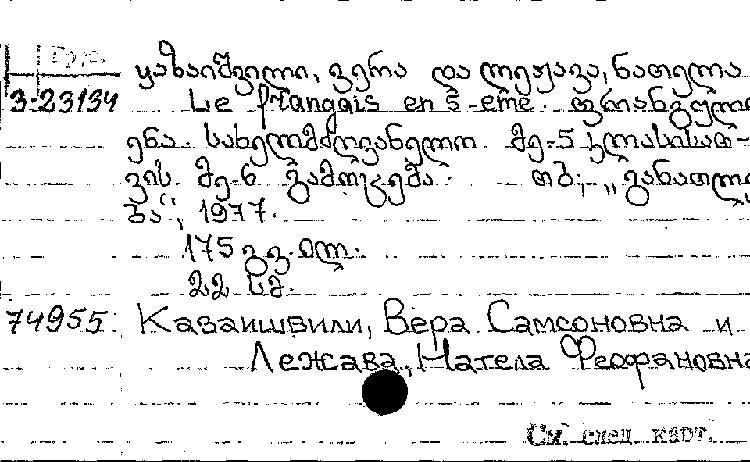 Груз.
ყაზაიშვილი, ვერა და ლეჟავა, ნათელა
3-23134 Le français en 5-eme. ფრანგული
ენა. სახელმძღვანელო მე-5 კლასისათ-
ვის. მე-6 გამოცემა. თბ., „განათლე
ბა", 1977.
175 გვ. ილ.
22 სმ.
74955. Казаишвили, Вера Самсоновна и
Лежава, Натела Феофановна
См. спец. карт.